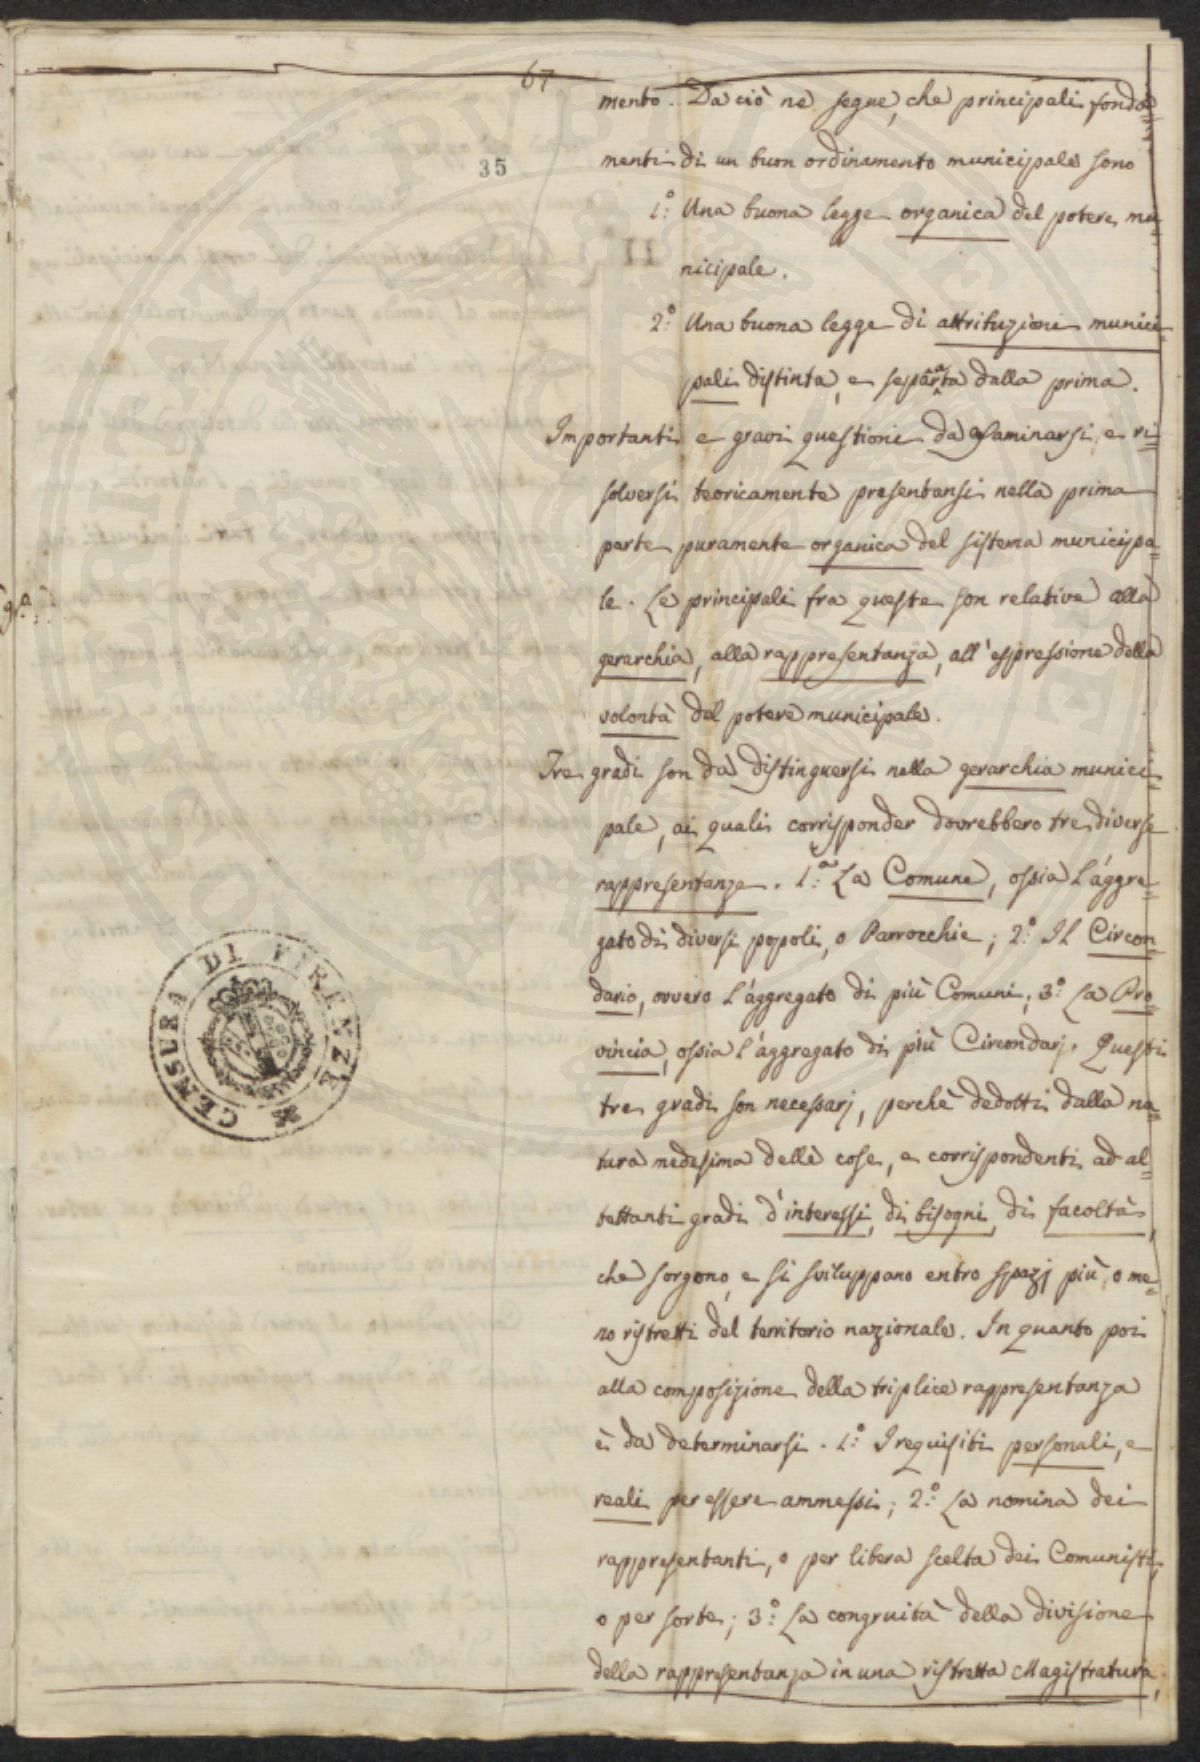 67
35
mento. Da ciò ne segue, che principali fonda=
menti di un buon ordinamento municipale sono
1.° Una buona legge organica del potere mu=
nicipale.
2.° Una buona legge di attribuzioni munici=
pali distinta, e separata dalla prima.
Importanti e gravi questioni da esaminarsi, e ri=
solversi teoricamente presentansi nella prima
parte puramente organica del sistema municipa=
le. Le principali fra queste son relative alla
gerarchia, alla rappresentanza, all'espressione della
volontà del potere municipale.
Tre gradi son da distinguersi nella gerarchia munici=
pale, ai quali corrisponder dovrebbero tre diverse
rappresentanze. 1.ª La Comune, ossia l'aggre=
gato di diversi popoli, o Parrocchie; 2.° Il Circon=
dario, ovvero l'aggregato di più Comuni; 3.° La Pro=
vincia, ossia l'aggregato di più Circondarj. Questi
tre gradi son necessarj, perchè dedotti dalla na=
tura medesima delle cose, e corrispondenti ad al=
tettanti gradi d'interessi, di bisogni, di facoltà,
che sorgono, e si sviluppano entro spazj più, o me=
no ristretti del territorio nazionale. In quanto poi
alla composizione della triplice rappresentanza
è da determinarsi. 1.° I requisiti personali, e
reali per essere ammessi; 2.° La nomina dei
rappresentanti, o per libera scelta dei Comunisti,
o per sorte; 3.° La congruità della divisione
della rappresentanza in una ristretta Magistratura,
CENSURA DI FIRENZE